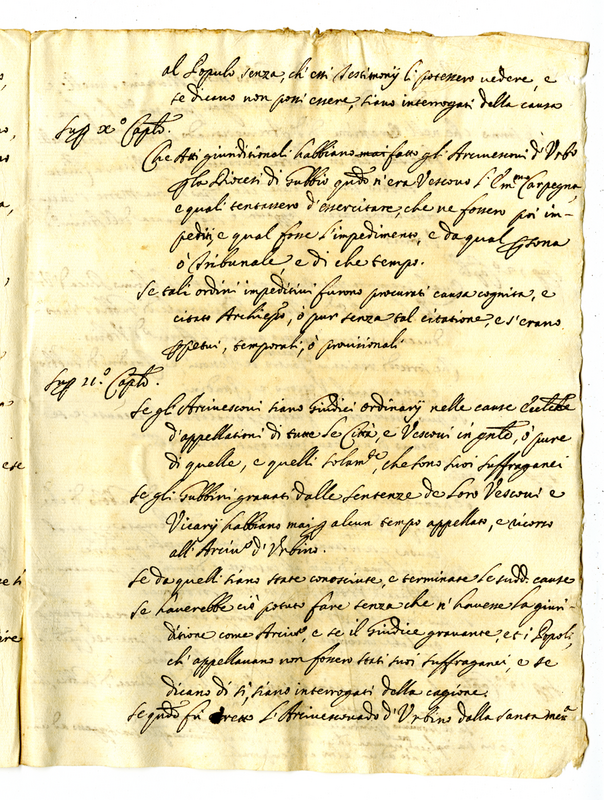 al Popolo senza, ch'essi Testimonij li potessero vedere, e
se dicano non possi essere, siano interrogati della causa
Sup x.º Caplo.
Che Atti giurisditionali habbiano mai fatto gli Arcivescovi d'Urbo
la Diocesi di Gubbio qudo n'era Vescovo l'Emmo Carpegna
e quali tentassero d'essercitare, che ne fossero poi im-
pediti, e qual fosse l'impedimento, e da qual psona
ò Tribunale e di che tempo.
Se tali ordini impeditivi furono procurati causa cognita, e
citato Archiepo, ò pur senza tal citatione, e s'erano
ppetui, temporali, ò provisionali
Sup 11.º Caplo.
Se gli Arcivescovi siano Giudici ordinarij nelle cause
d'appellationi di tutte le Città, e Vescovi in gnle, ò pure
di quelle, e quelli solamte, che sono suoi suffraganei
Se gli Gubbini gravati dalle sentenze de loro Vescovi e
Vicarij habbiano mai p alcun tempo appellato, e ricorso
all'Arcivo d'Urbino.
Se da quelli siano state conosciute, e terminate le sudd. cause
Se haverebbe ciò potuto fare senza che n'havesse la giuri-
ditione come Arcivo, e se il Giudice gravante, et i Popoli,
ch'appellavano non fossero stati suoi suffraganei, e se
dicano di sì, siano interrogati della cagione.
Se qudo fù eretto l'Arcivescovado d'Urbino dalla santa mema